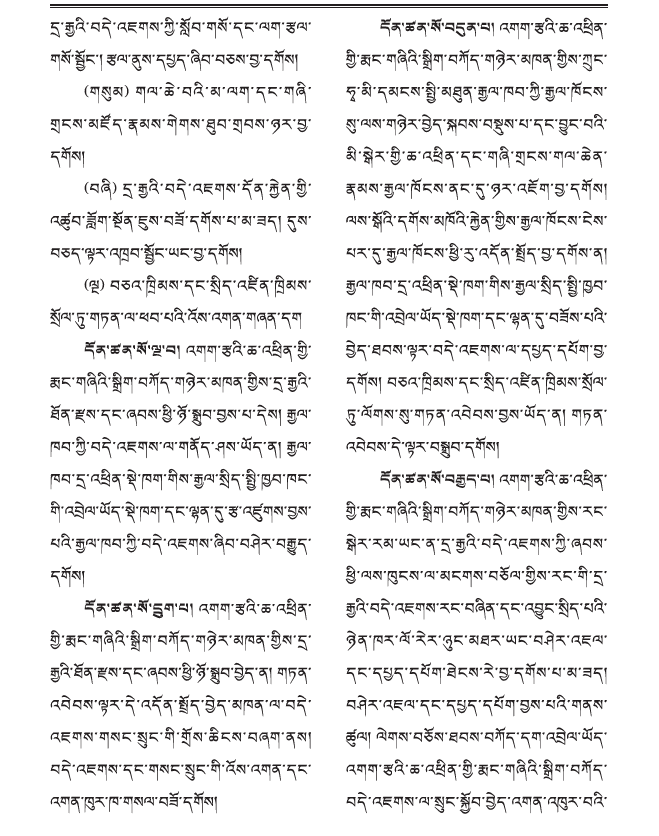 དྲ་རྒྱའི་བདེ་འཇགས་ཀྱི་སློབ་གསོ་དང་ལག་རྩལ་
གསོ་སྦྱོང་། རྩལ་ནུས་དཔྱད་ཞིབ་བཅས་བྱ་དགོས།
(གསུམ) གལ་ཆེ་བའི་མ་ལག་དང་གཞི་
གྲངས་མཛོད་རྣམས་གེགས་ཐུབ་གྲབས་ཉར་བྱ་
དགོས།
(བཞི) དྲ་རྒྱའི་བདེ་འཇགས་དོན་རྐྱེན་གྱི་
འཚུབ་ཟློག་སྔོན་ཇུས་བཟོ་དགོས་པ་མ་ཟད། དུས་
བཅད་ལྟར་འཁྲབ་སྦྱོང་ཡང་བྱ་དགོས།
(ལྔ) བཅའ་ཁྲིམས་དང་སྲིད་འཛིན་ཁྲིམས་
སྲོལ་ཏུ་གཏན་ལ་ཕབ་པའི་འོས་འགན་གཞན་དག
དོན་ཚན་སོ་ལྔ་བ། འགག་རྩའི་ཆ་འཕྲིན་གྱི་
རྨང་གཞིའི་སྒྲིག་བཀོད་གཉེར་མཁན་གྱིས་དྲ་རྒྱའི་
ཐོན་རྫས་དང་ཞབས་ཕྱི་ཉོ་སྒྲུབ་བྱས་པ་དེས། རྒྱལ་
ཁབ་ཀྱི་བདེ་འཇགས་ལ་གནོད་ཤས་ཡོད་ན། རྒྱལ་
ཁབ་དྲ་འཕྲིན་སྡེ་ཁག་གིས་རྒྱལ་སྲིད་སྤྱི་ཁྱབ་ཁང་
གི་འབྲེལ་ཡོད་སྡེ་ཁག་དང་ལྷན་དུ་རྩ་འཛུགས་བྱས་
པའི་རྒྱལ་ཁབ་ཀྱི་བདེ་འཇགས་ཞིབ་བཤེར་བརྒྱུད་
དགོས།
དོན་ཚན་སོ་དྲུག་པ། འགག་རྩའི་ཆ་འཕྲིན་
གྱི་རྨང་གཞིའི་སྒྲིག་བཀོད་གཉེར་མཁན་གྱིས་དྲ་
རྒྱའི་ཐོན་རྫས་དང་ཞབས་ཕྱི་ཉོ་སྒྲུབ་བྱེད་ན། གཏན་
འབེབས་ལྟར་དེ་འདོན་སྤྲོད་བྱེད་མཁན་ལ་བདེ་
འཇགས་གསང་སྲུང་གི་གྲོས་ཆིངས་བཞག་ནས།
བདེ་འཇགས་དང་གསང་སྲུང་གི་འོས་འགན་དང་
འགན་ཁུར་ཁ་གསལ་བཟོ་དགོས།
དོན་ཚན་སོ་བདུན་པ། འགག་རྩའི་ཆ་འཕྲིན་
གྱི་རྨང་གཞིའི་སྒྲིག་བཀོད་གཉེར་མཁན་གྱིས་ཀྲུང་
ཧྭ་མི་དམངས་སྤྱི་མཐུན་རྒྱལ་ཁབ་ཀྱི་རྒྱལ་ཁོངས་
སུ་ལས་གཉེར་བྱེད་སྐབས་བསྡུས་པ་དང་བྱུང་བའི་
མི་སྒེར་གྱི་ཆ་འཕྲིན་དང་གཞི་གྲངས་གལ་ཆེན་
རྣམས་རྒྱལ་ཁོངས་ནང་དུ་ཉར་འཇོག་བྱ་དགོས།
ལས་སྒོའི་དགོས་མཁོའི་རྐྱེན་གྱིས་རྒྱལ་ཁོངས་ངེས་
པར་དུ་རྒྱལ་ཁོངས་ཕྱི་རུ་འདོན་སྤྲོད་བྱ་དགོས་ན།
རྒྱལ་ཁབ་དྲ་འཕྲིན་སྡེ་ཁག་གིས་རྒྱལ་སྲིད་སྤྱི་ཁྱབ་
ཁང་གི་འབྲེལ་ཡོད་སྡེ་ཁག་དང་ལྷན་དུ་བཟོས་པའི་
བྱེད་ཐབས་ལྟར་བདེ་འཇགས་ལ་དཔྱད་དཔོག་བྱ་
དགོས། བཅའ་ཁྲིམས་དང་སྲིད་འཛིན་ཁྲིམས་སྲོལ་
ཏུ་ལོགས་སུ་གཏན་འབེབས་བྱས་ཡོད་ན། གཏན་
འབེབས་དེ་ལྟར་བསྒྲུབ་དགོས།
དོན་ཚན་སོ་བརྒྱད་པ། འགག་རྩའི་ཆ་འཕྲིན་
གྱི་རྨང་གཞིའི་སྒྲིག་བཀོད་གཉེར་མཁན་གྱིས་རང་
སྒེར་རམ་ཡང་ན་དྲ་རྒྱའི་བདེ་འཇགས་ཀྱི་ཞབས་
ཕྱི་ལས་ཁུངས་ལ་མངགས་བཅོལ་གྱིས་རང་གི་དྲ་
རྒྱའི་བདེ་འཇགས་རང་བཞིན་དང་འབྱུང་སྲིད་པའི་
ཉེན་ཁར་ལོ་རེར་ཉུང་མཐར་ཡང་བཤེར་འཇལ་
དང་དཔྱད་དཔོག་ཐེངས་རེ་བྱ་དགོས་པ་མ་ཟད།
བཤེར་འཇལ་དང་དཔྱད་དཔོག་བྱས་པའི་གནས་
ཚུལ། ལེགས་བཅོས་ཐབས་བཀོད་དག་འབྲེལ་ཡོད་
འགག་རྩའི་ཆ་འཕྲིན་གྱི་རྨང་གཞིའི་སྒྲིག་བཀོད་
བདེ་འཇགས་ལ་སྲུང་སྐྱོབ་བྱེད་འགན་འཁུར་བའི་